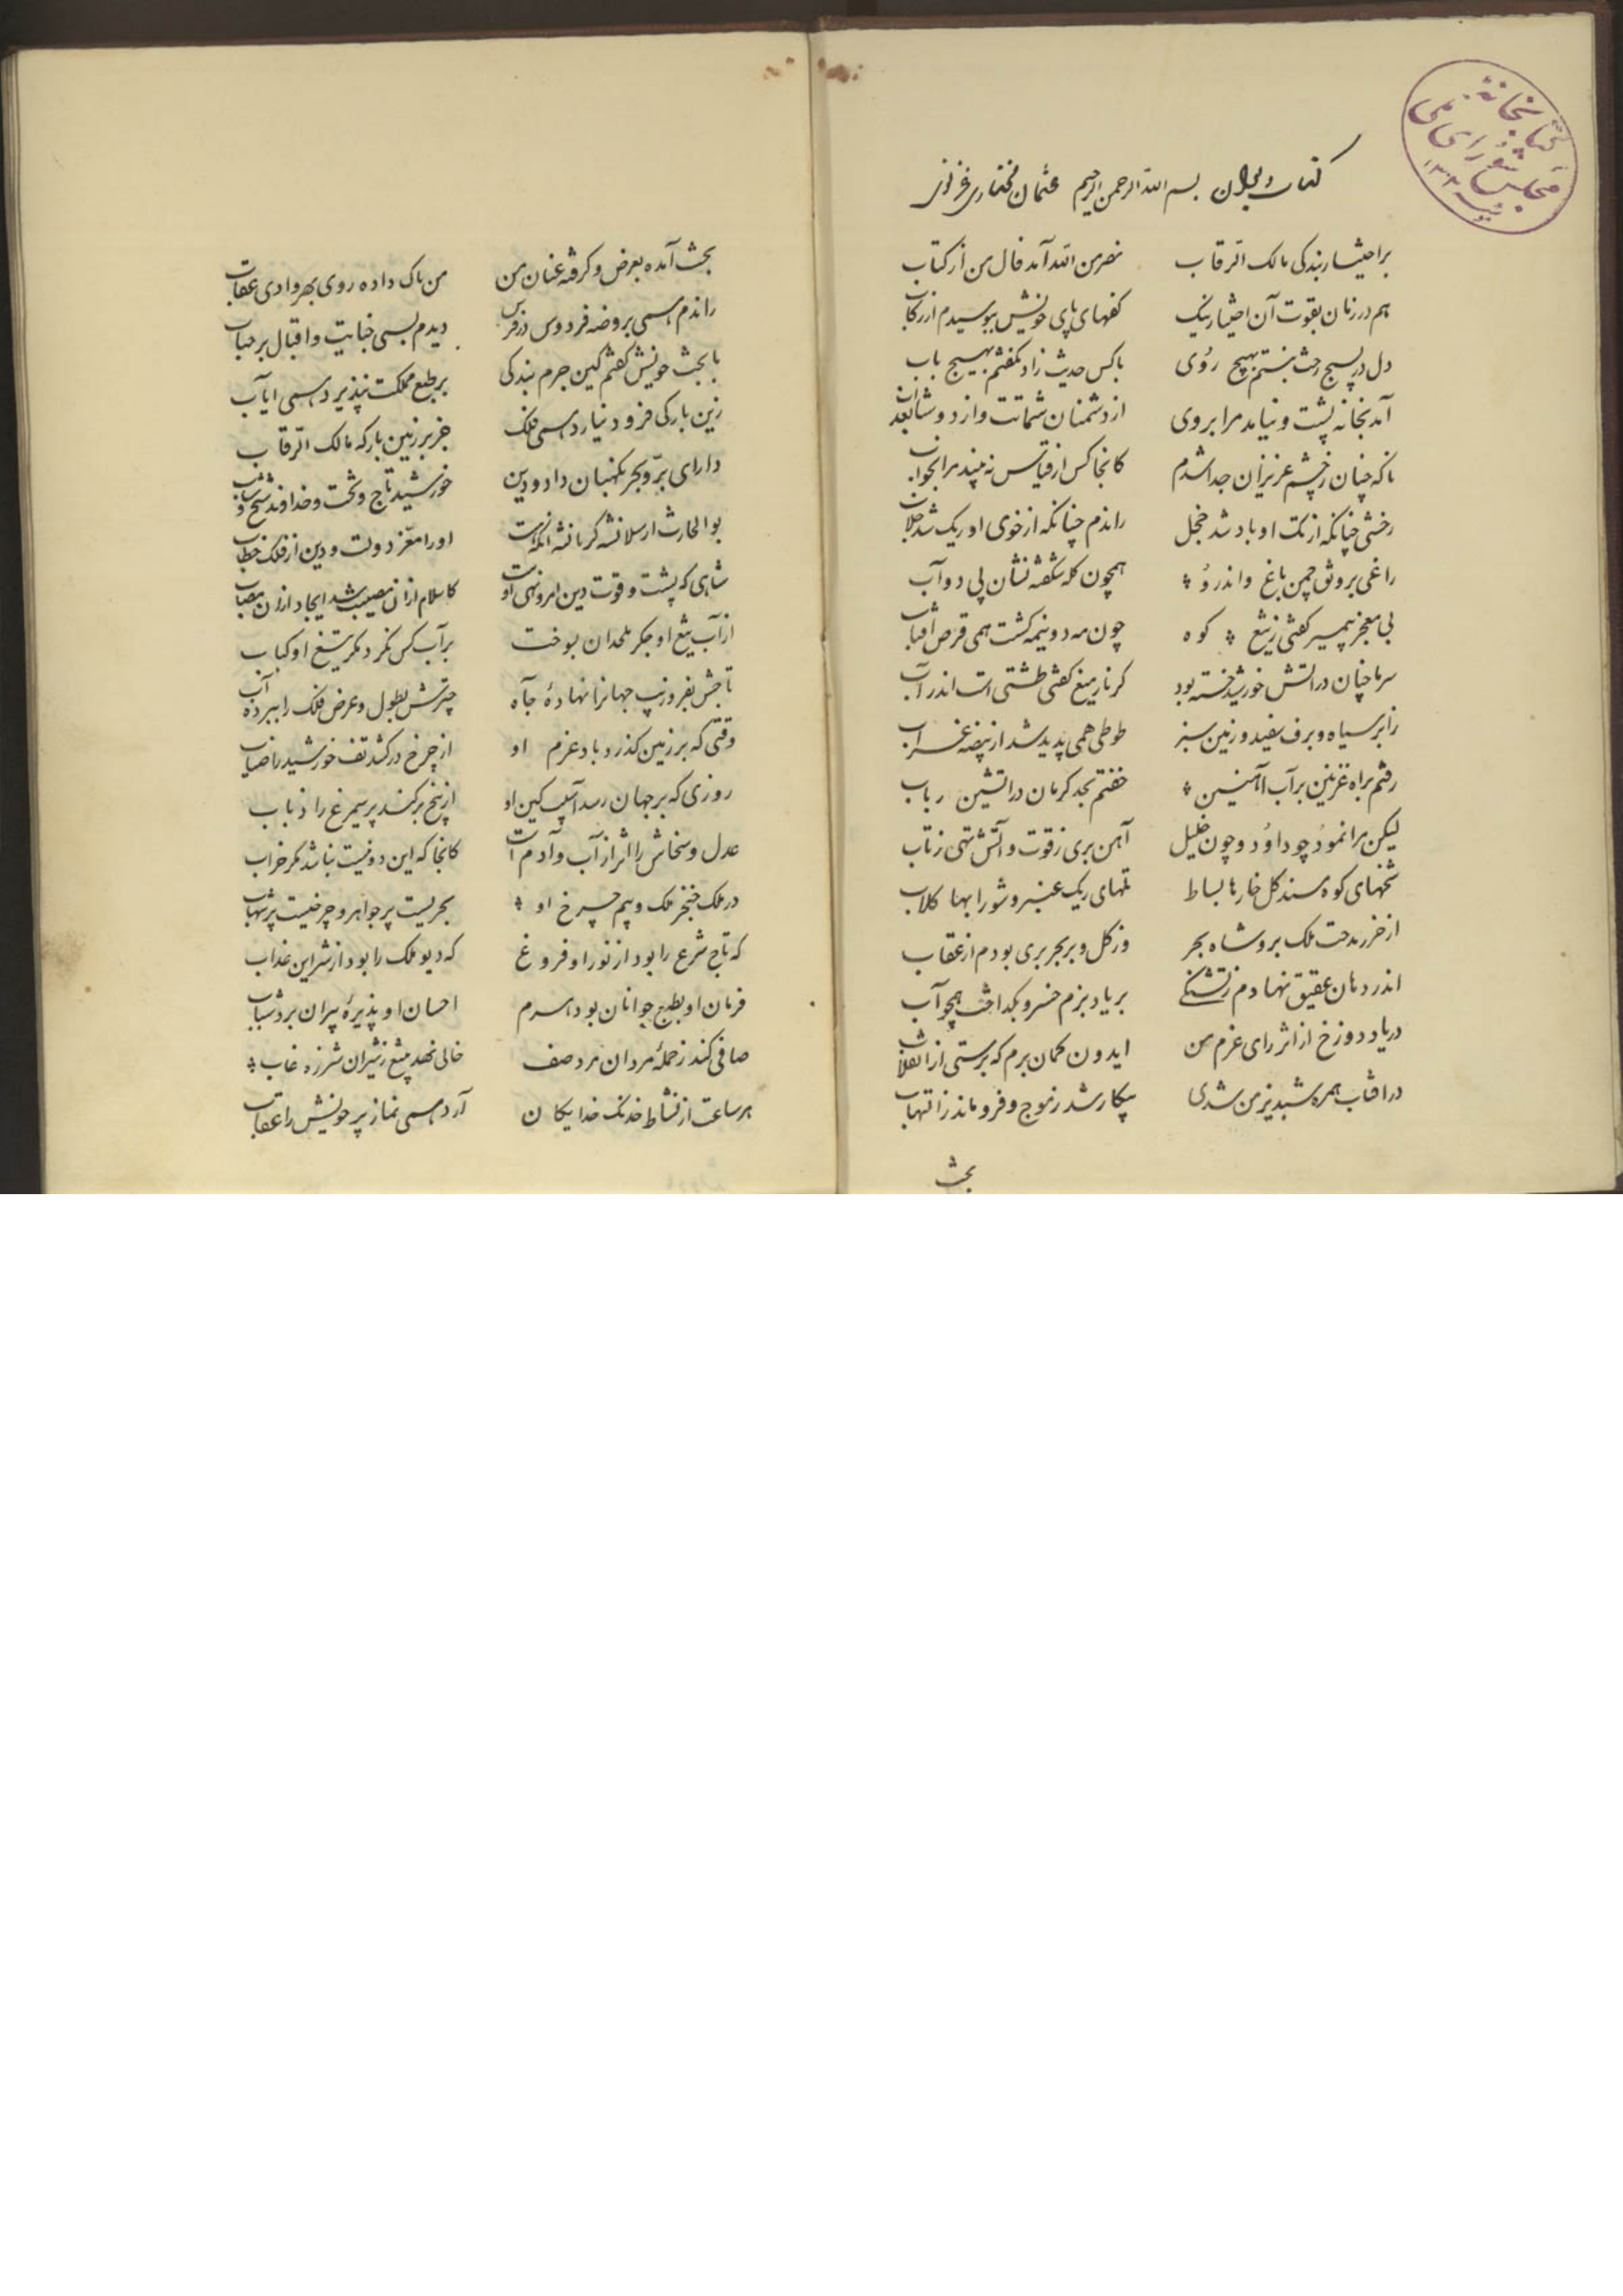 کتابخانهٔ
مجلس شورای ملی
کتاب دیوان بسم الله الرحمن الرحیم عثمان مختاری غزنوی
بر اختیار بندکی مالک الرقاب نصر من الله آمد فال من از کتاب
هم در زمان بقوت آن اختیار نیک کفهای پای خویش ببوسیدم از رکاب
دل در بسیج رخت نبستم بهیچ روی با کس حدیث زاد نکفتم بهیچ باب
آمد بخانه پشت و نیامد مرا بروی از دشمنان شماتت و از دوستان
تا که چنان ز چشم عزیزان جدا شدم کانجا کس از قیاس نه بیند مرا بخواب
رخشی چنانکه از تک او باد شد خجل راندم چنانکه از خوی او ریک شد خلاب
راغی برونق چمن باغ و اندرو همچون کل شکفته نشان پی دوآب
بی معجز پیمبر کفتی ز تیغ کوه چون مه دو نیمه کشت همی قرص آفتاب
سرما چنان در آتش خورشید خسته بود کز نار میغ کفتی طشتی است اندر آب
ز ابر سیاه و برف سفید و زمین سبز طوطی همی پدید شد از بیضه غراب
رفتم براه غزنین بر آب آهنین خفتم بحد کرمان در آتشین رباب
لیکن مرا نمود چو داود و چون خلیل آهن بری ز قوت و آتش تهی ز تاب
شخهای کوه سند کل خارها بساط تلهای ریک عنبر و شورابها کلاب
از خرر مدحت ملک بر و شاه بحر وز کل و بر بحر بری بودم از عقاب
اندر دهان عقیق نهادم ز تشنکی بر یاد بزم خسرو بکداخت همچو آب
دریا و دوزخ از اثر رای عزم من ایدون کمان برم که برستی از انقلاب
در آفتاب همره شبدیز من شدی بیکار شد ز موج و فرو ماند ز التهاب
بخت
بخت آمده بعرض و کرفته عنان من من باک داده روی بهر وادی عقاب
راندم همی بروضه فردوس در دیدم بسی جنایت و اقبال بر حباب
با بخت خویش کفتم کین جرم بندکی بر طبع مملکت نپذیرد همی ایاب
زین بارکی فرود نیارد همی فلک جز بر زمین بارکه مالک الرقاب
دارای بر و بحر نکهبان داد و دین خورشید تاج و تخت و خداوند شیخ و شاب
بوالحارث ارسلانشه کرمانشه آنکه هست او را معز دولت و دین از فلک خطاب
شاهی که پشت و قوت دین امر و نهی اوست کاسلام از آن مصیب شد ایجاد از آن مصاب
از آب تیغ او جکر ملحدان بسوخت بر آب کس نکرد مکر تیغ او کباب
تاجش بفر و زیب جهانرا نهاده جاه چترش بطول و عرض فلک را ببرده آب
وقتی که بر زمین کذرد باد عزم او از چرخ در کشد تف خورشید با ضیاب
روزی که بر جهان رسد آسیب کین او از بیخ بر کند پر سیمرغ را ذباب
عدل و سخاش را اثر از آب و آدم است کانجا که این دو نیست نباشد مکر خراب
در ملک خنجر ملک و بیم چرخ او بحریست پر جواهر و چرخیست پر شهاب
که تاج شرع را بود از نور او فروغ که دیو ملک را بود از شر این عذاب
فرمان او بطبع جوانان بود هرم احسان او پذیرهٔ پیران برد شباب
صافی کند ز حملهٔ مردان مرد صف خالی نهد بتیغ ز شیران شرزه غاب
هر ساعت از نشاط خدنک خدایکان آرد همی نماز پر خویش را عقاب